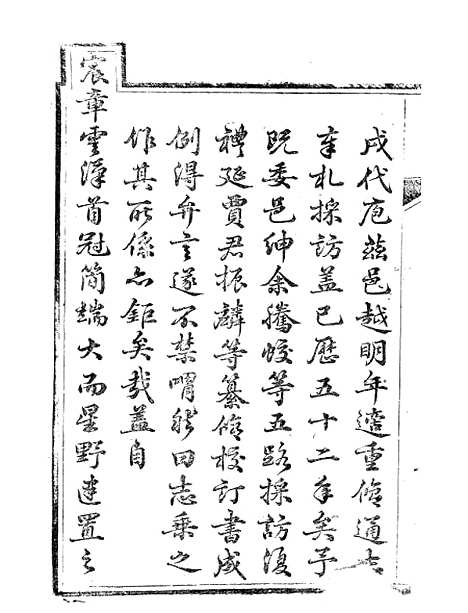 戍代庖茲邑越明年遵重脩通志
奉札採訪盖已歷五十二年矣予
既委邑紳余騰蛟等五路採訪復
禮延賈君振麟等纂脩校訂書成
例得弁言遂不禁喟然曰志乘之
作其所係亦鉅矣哉蓋自
宸章雲漢首冠簡端大而星野建置之